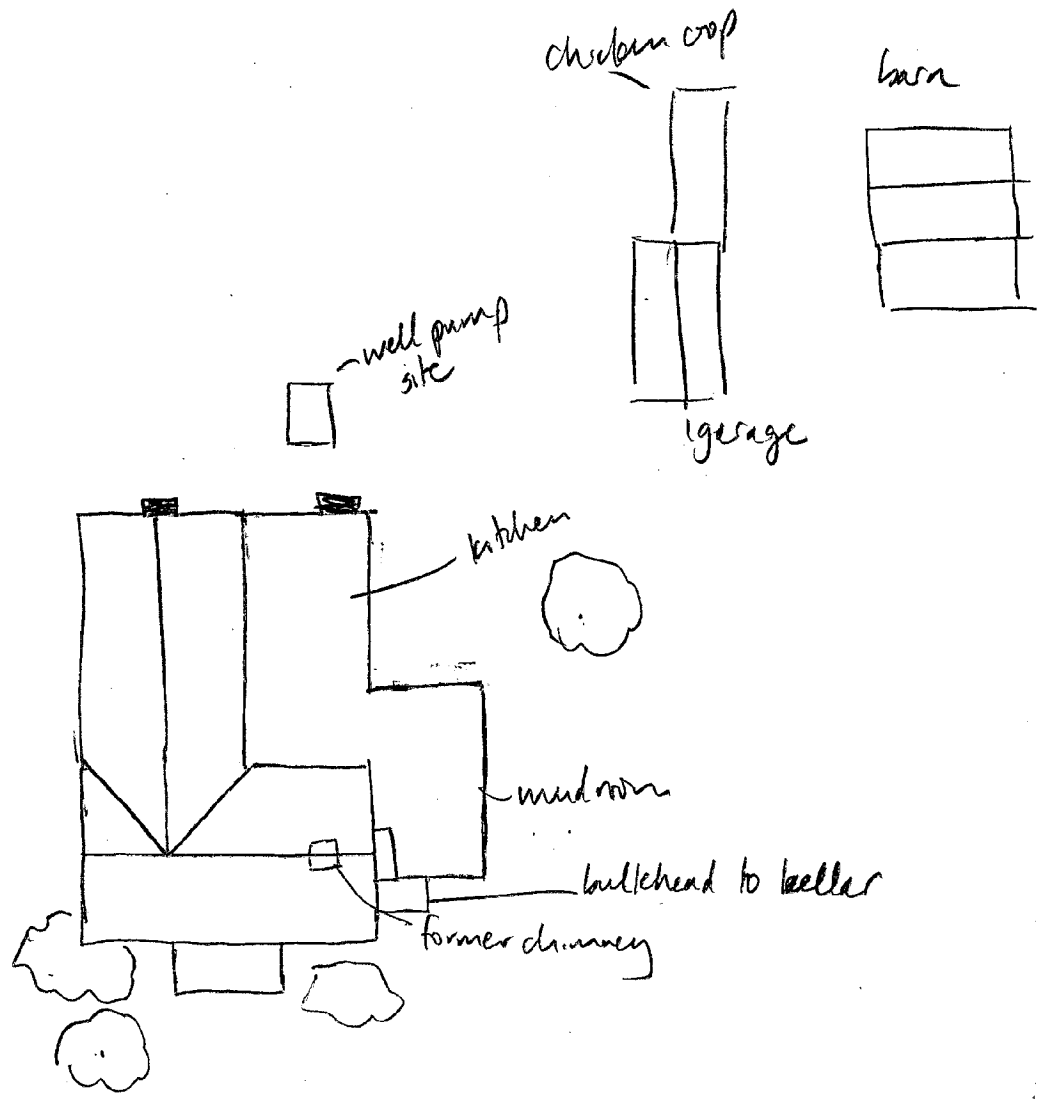 chicken coop
barn
well pump
site
garage
kitchen
mudroom
bulkhead to kellar
former chimney